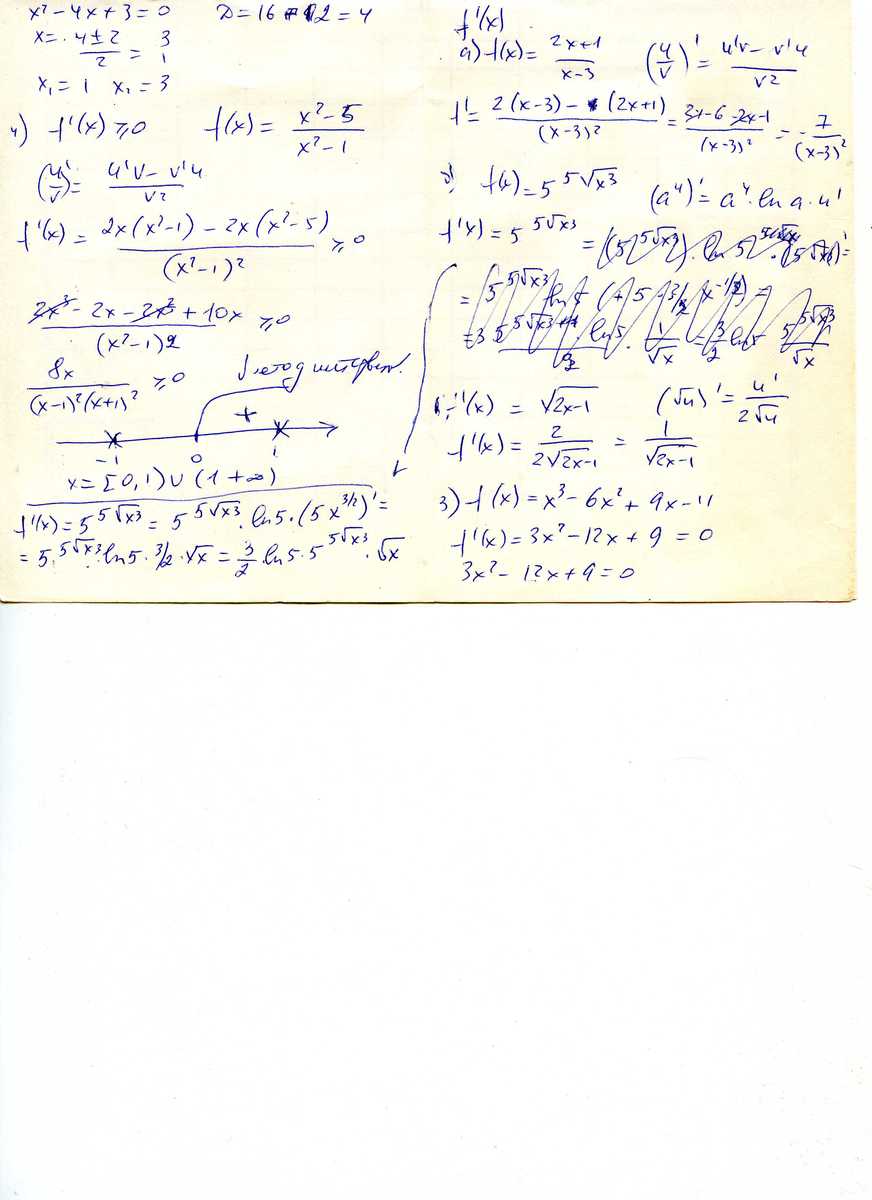 x² - 4x + 3 = 0     D = 16 - 12 = 4
x = (4 ± 2)/2 = 3
1
x₁ = 1   x₂ = 3
4) f'(x) ≥ 0     f(x) = (x² - 5)/(x² - 1)
(u/v)' = (u'v - v'u)/v²
f'(x) = (2x(x² - 1) - 2x(x² - 5))/(x² - 1)² ≥ 0
(2x³ - 2x - 2x³ + 10x)/(x² - 1)2 ≥ 0
8x/((x-1)²(x+1)²) ≥ 0     метод интервал.
+
-1   0   1
x = [0, 1) ∪ (1 + ∞)
f'(x) = 5^(5√x³) = 5^(5√x³) · ln 5 · (5x^(3/2))' =
= 5 · 5^(√x³) ln 5 · 3/2 · √x = 3/2 · ln 5 · 5^(5√x³) · √x
f'(x)
а) f(x) = (2x + 1)/(x - 3)     (u/v)' = (u'v - v'u)/v²
f' = (2(x-3) - (2x+1))/(x-3)² = (2x - 6 - 2x - 1)/(x-3)² = - 7/(x-3)²
f(x) = 5^(5√x³)     (a^u)' = a^u · ln a · u'
f'(x) = 5^(5√x³) =
f'(x) = √(2x-1)     (√u)' = u'/(2√u)
f'(x) = 2/(2√(2x-1)) = 1/√(2x-1)
3) f(x) = x³ - 6x² + 9x - 11
f'(x) = 3x² - 12x + 9 = 0
3x² - 12x + 9 = 0